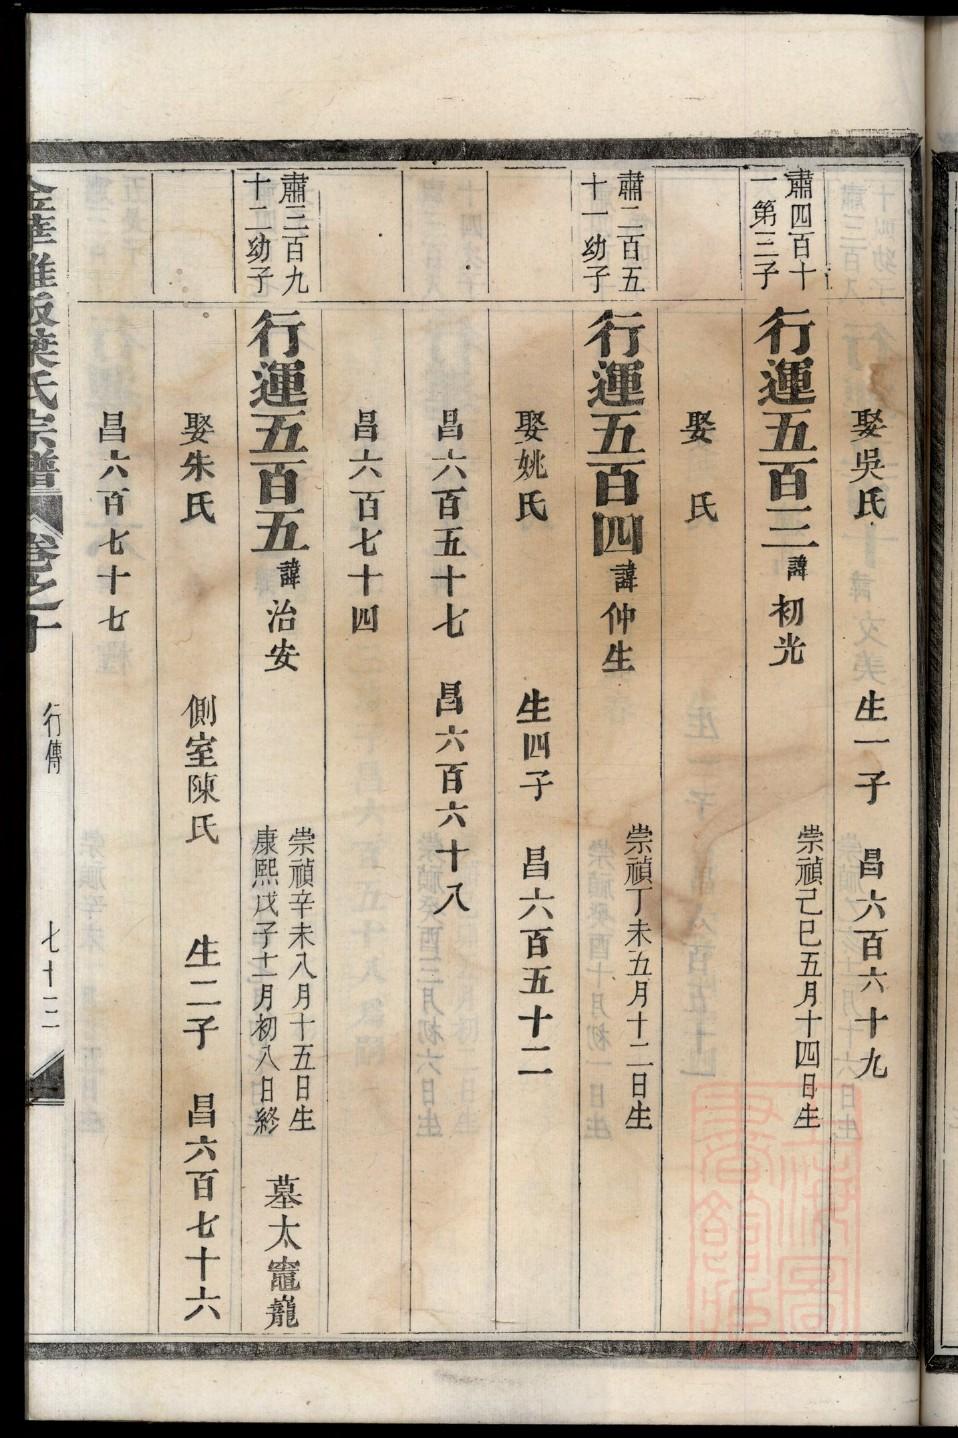 娶吳氏 生一子 昌六百六十九
肅四百十
一第三子
行運五百三 諱 初光 崇禎己巳五月十四日生
娶 氏
肅二百五
十一幼子
行運五百四 諱 仲生 崇禎丁未五月十二日生
娶姚氏 生四子 昌六百五十二
昌六百五十七 昌六百六十八
昌六百七十四
肅三百九
十二幼子
行運五百五 諱 治安 崇禎辛未八月十五日生
康熙戊子十一月初八日終 墓太竈巃
娶朱氏 側室陳氏 生二子 昌六百七十六
昌六百七十七
金華 葉氏宗譜 卷之十 行傳 七十三